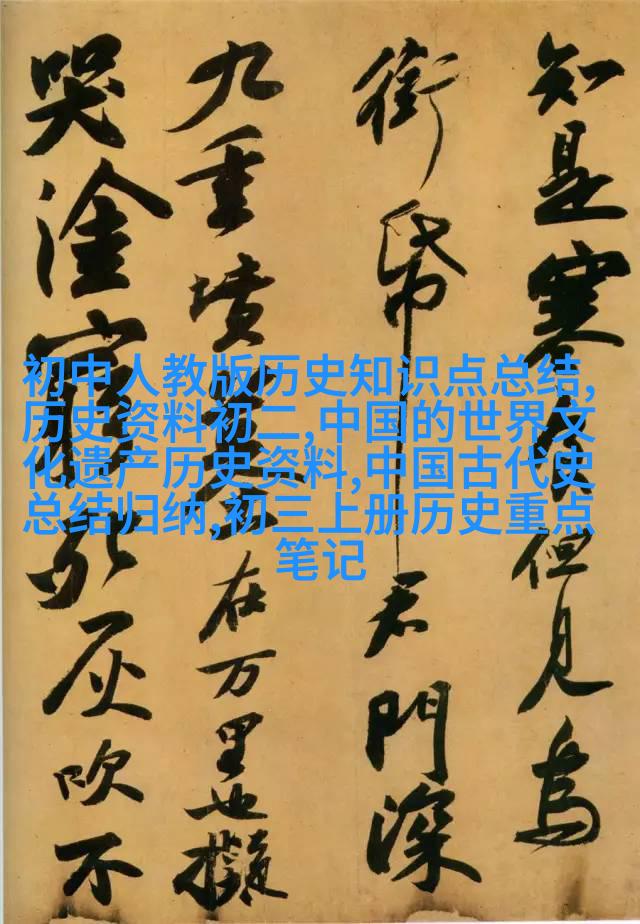 知是寒食但見烏
銜帋君門深
九重墳墓在万里也擬
哭塗窮死灰吹不
初中人教版历史知识点总结,
历史资料初二,中国的世界文
化遗产历史资料,中国古代史
总结归纳,初三上册历史重点
笔记